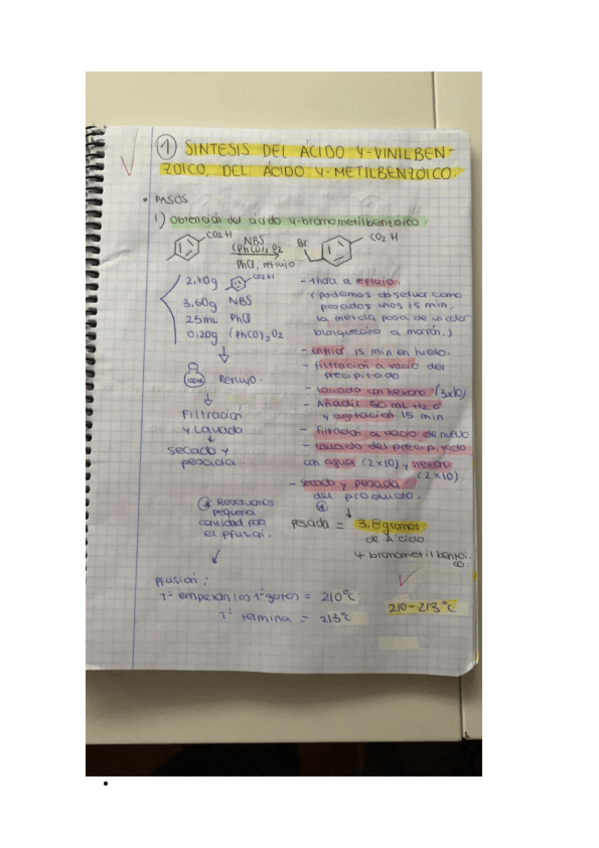 ① SINTESIS DEL ÁCIDO 4-VINILBEN-
ZOICO, DEL ÁCIDO 4-METILBENZOICO.
• PASOS
1) Obtención del ácido 4-bromometilbenzoico
CO2H
NBS
(PhCO)2O2
PhCl, reflujo
Br
CO2H
2,70g CO2H
3,60g NBS
25mL PhCl
0,20g (PhCO)2O2
100ml Reflujo.
Filtración
y Lavado
secado y
pesada.
- 1 hora a reflujo.
(podemos observar como
pasados unos 15 min,
la mezcla pasa de un color
blanquecino a marrón.)
- Enfriar 15 min en hielo.
- Filtración a vacio del
precipitado
- Lavado con hexano (3x10)
- Añadir 50 mL H2O
y agitación 15 min
- Filtración a vacio de nuevo
- Lavado del precipitado
con agua (2x10) y hexano
(2x10)
- secado y pesada
del producto.
pesada = 3,8 gramos
de Ácido
4-bromometilbenzoi
co.
pequeña
cantidad para
el pfusión.
Pfusión:
Tª empiezan las 1ª gotas = 210ºC
Tª termina = 213ºC
210-213ºC